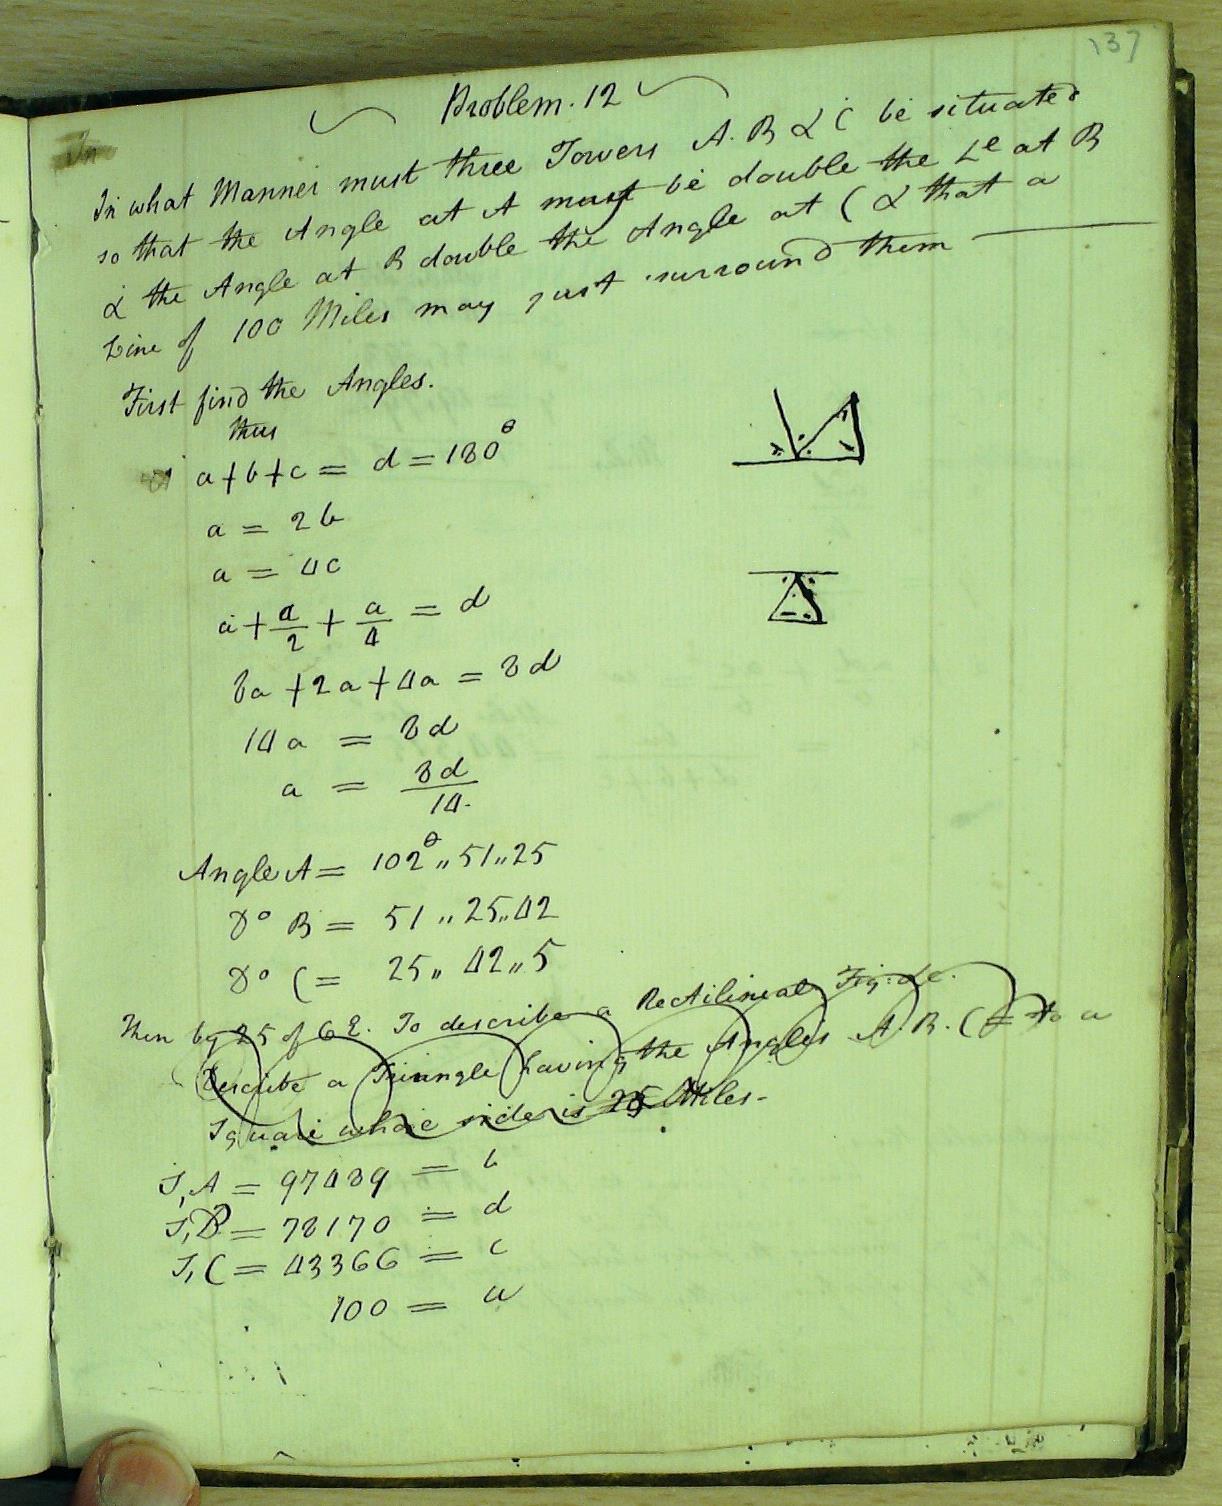 137
Problem. 12
In
In what Manner must three Towers A. B & C be situated
so that the Angle at A must be double the Le at B
& the Angle at B double the Angle at C & that a
Line of 100 Miles may just surround them
First find the Angles.
thus
a + b + c = d = 180°
a = 2b
a = 4c
a + a/2 + a/4 = d
8a + 2a + 4a = 8d
14a = 8d
a = 8d/14.
Angle A = 102° ,, 51 ,, 25
Do B = 51 ,, 25 ,, 42
Do C = 25 ,, 42 ,, 5
Then by 25 of 6 E. To describe a Rectilineal Fig. &c.
Describe a Triangle having the Angles A. B. C = to a
Square whose side is 25 Miles-
S, A = 97489 = b
S, B = 78170 = d
S, C = 43366 = c
100 = a